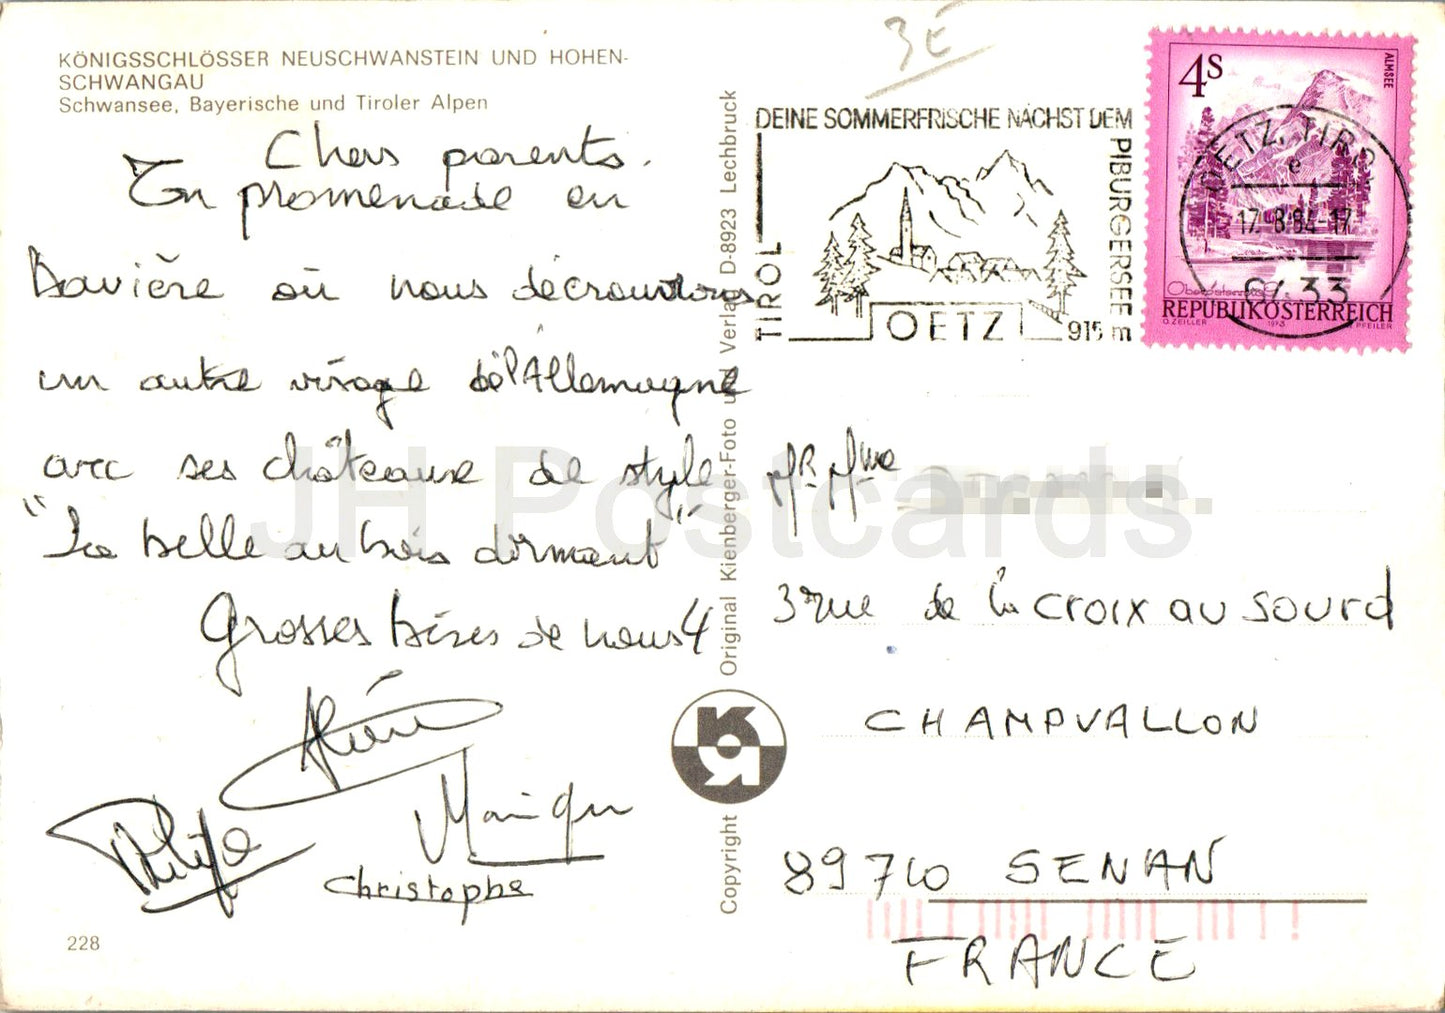 KÖNIGSSCHLÖSSER NEUSCHWANSTEIN UND HOHEN-
SCHWANGAU
Schwansee, Bayerische und Tiroler Alpen
Chers parents.
En promenade en
Bavière où nous découvrons
un autre visage de l'Allemagne
avec ses châteaux de style
"La belle au bois dormant"
Grosses bises de nous 4
Philippe
Monique
Christophe
228
Original Kienberger-Foto und Verlag D-8923 Lechbruck
Copyright
3E
DEINE SOMMERFRISCHE NÄCHST DEM
PIBURGERSEE
TIROL
OETZ
915 m
4S
ALMSEE
OETZ, TIROL
e
17.-8.84-17
6433
Oberösterreich
REPUBLIK ÖSTERREICH
O. ZEILLER 1973 PFEILER
Mr Mme
3 rue de la Croix au Sourd
CHAMPVALLON
89710 SENAN
FRANCE
JH Postcards